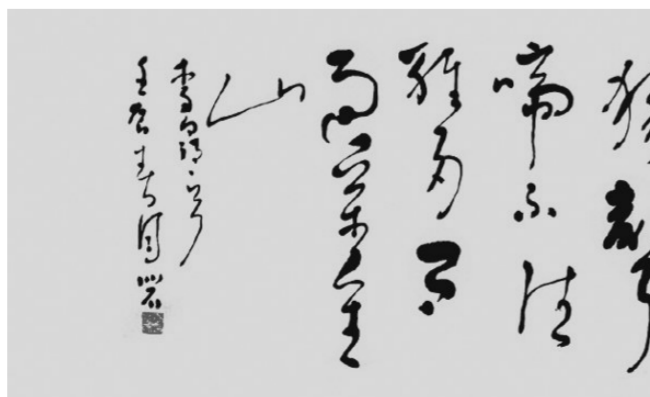 猿声
啼不住
轻舟已
过万重
山
李白诗一首